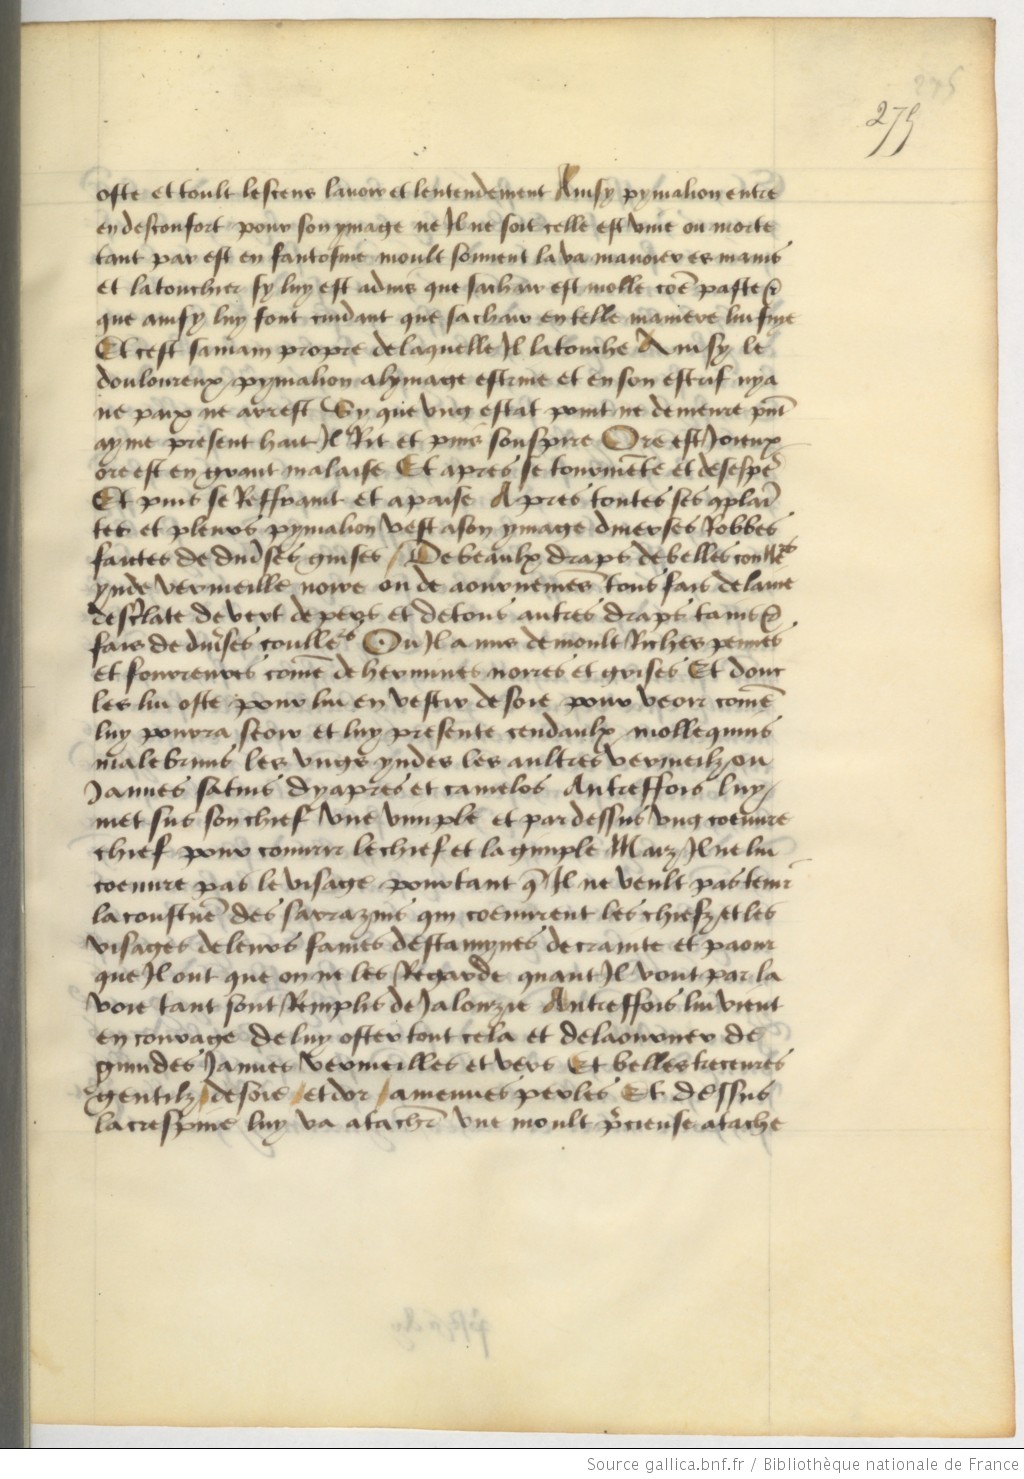 275
oste et toult le scens lavoir et lentendement Ainsy pymalion entre
en desconfort pour son ymage ne Il ne soit celle est vive ou morte
tant par est en fantosme moult souvent la va manoier es mains
et la touchier sy luy est advis que sa char est molle coe paste Et
que ainsy luy font cuidant que sa chair en telle maniere lui fuye
Et cest sa main propre de laquelle Il la touche Ainsy le
douloureux pymalion a lymage estrive et en son estrif nya
ne paix ne arrest Sy que ung estat point ne demeure pnt
ayme present hait Il Rit et puis souspire Ore est Joieux
ore est en grant malaise Et apres se tourmete et desespe
Et puis se Reffraint et apaise Apres toutes ses oplai
tes et pleurs pymalion vest a son ymage diverses Robbes
faictes de divses guises / De beaulx draps de belles coulle
ynde vermeille noire ou de aournemes tous fais de laine
descrlate de vert de pers et de tous autres draps tains Et
fais de divses coulles Ou Il a mis de moult Riches pennes
et fourreures come de hermines noires et grises Et donc
les lui oste pour lui en vestir de soie pour veoir come
luy pourra seoir et luy presente cendaulx mollequins
malebruns les ungs yndes les aultres vermeilz ou
Jaunes satins dyapres et camelos Autreffois luy
met sus son chief une vimple et par dessus ung coeuvre
chief pour couvrir le chief et la guiple Maiz Il ne lui
coeuvre pas le visage pourtant q Il ne veult pas tenir
la coustue des sarrazins qui coeuvrent les chiefz et les
visages de leurs fames destamynes de crainte et paour
que Il ont que on ne les Regarde quant Il vont par la
voie tant sont Remplis de Jalouzie Autreffois lui vient
en courage de luy oster tout cela et de la ourner de
guindes Jaunes vermeilles et vers Et belles treceures
gentilz / de soie / et dor / a menues perles Et dessus
la crespine luy va atachr une moult pcieuse atache
Source gallica.bnf.fr / Bibliothèque nationale de France